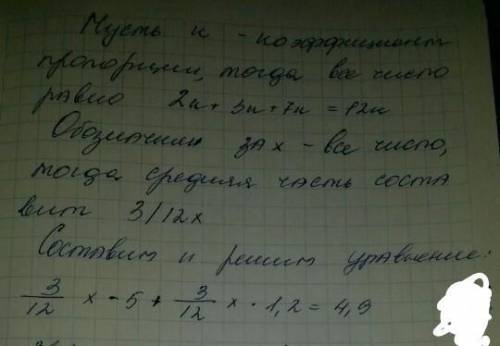 Пусть к - коэффициент
пропорции, тогда все число
равно 2к + 3к + 7к = 12к
Обозначим за х - все число,
тогда средняя часть соста
вит 3/12х
Составим и решим уравнение:
3/12 х - 5 + 3/12 х · 1,2 = 4,9